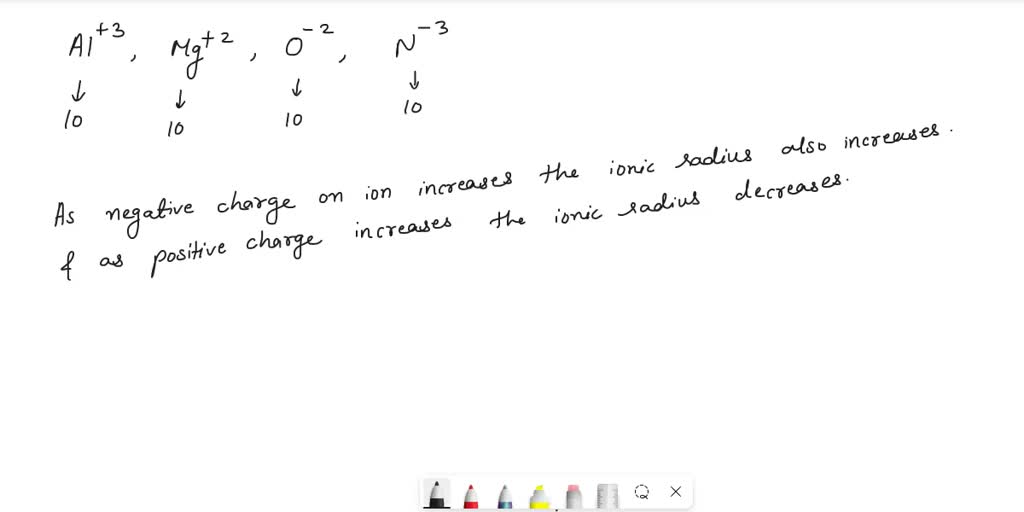 Al+3, Mg+2, O-2, N-3
↓ ↓ ↓ ↓
10 10 10 10
As negative charge on ion increases the ionic radius also increases.
& as positive charge increases the ionic radius decreases.